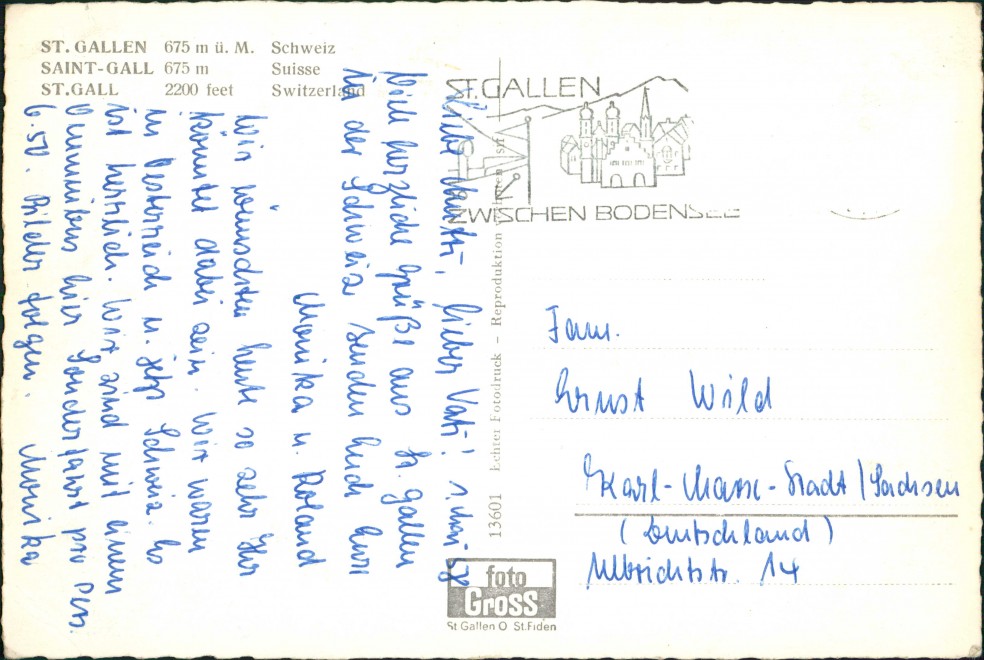 ST. GALLEN 675 m ü. M. Schweiz
SAINT-GALL 675 m Suisse
ST. GALL 2200 feet Switzerland
ST. GALLEN
ZWISCHEN BODENSEE
Liebe Mutti, lieber Vati!
Viele herzliche Grüße aus St. Gallen
in der Schweiz senden Euch Eure
Monika u. Roland
Wir wünschten heute so sehr Ihr
könntet dabei sein. Wir waren
in Österreich u. jetzt Schweiz. Es
ist herrlich. Wir sind mit einem
Omnibus hier Sonderfahrt pro Pers.
6.50. Bilder folgen. Monika
13601 Echter Fotodruck – Reproduktion verboten
Fam.
Ernst Wild
Karl-Marx-Stadt / Sachsen
(Deutschland)
Ulbrichtstr. 14
foto
Gross
St Gallen O St. Fiden